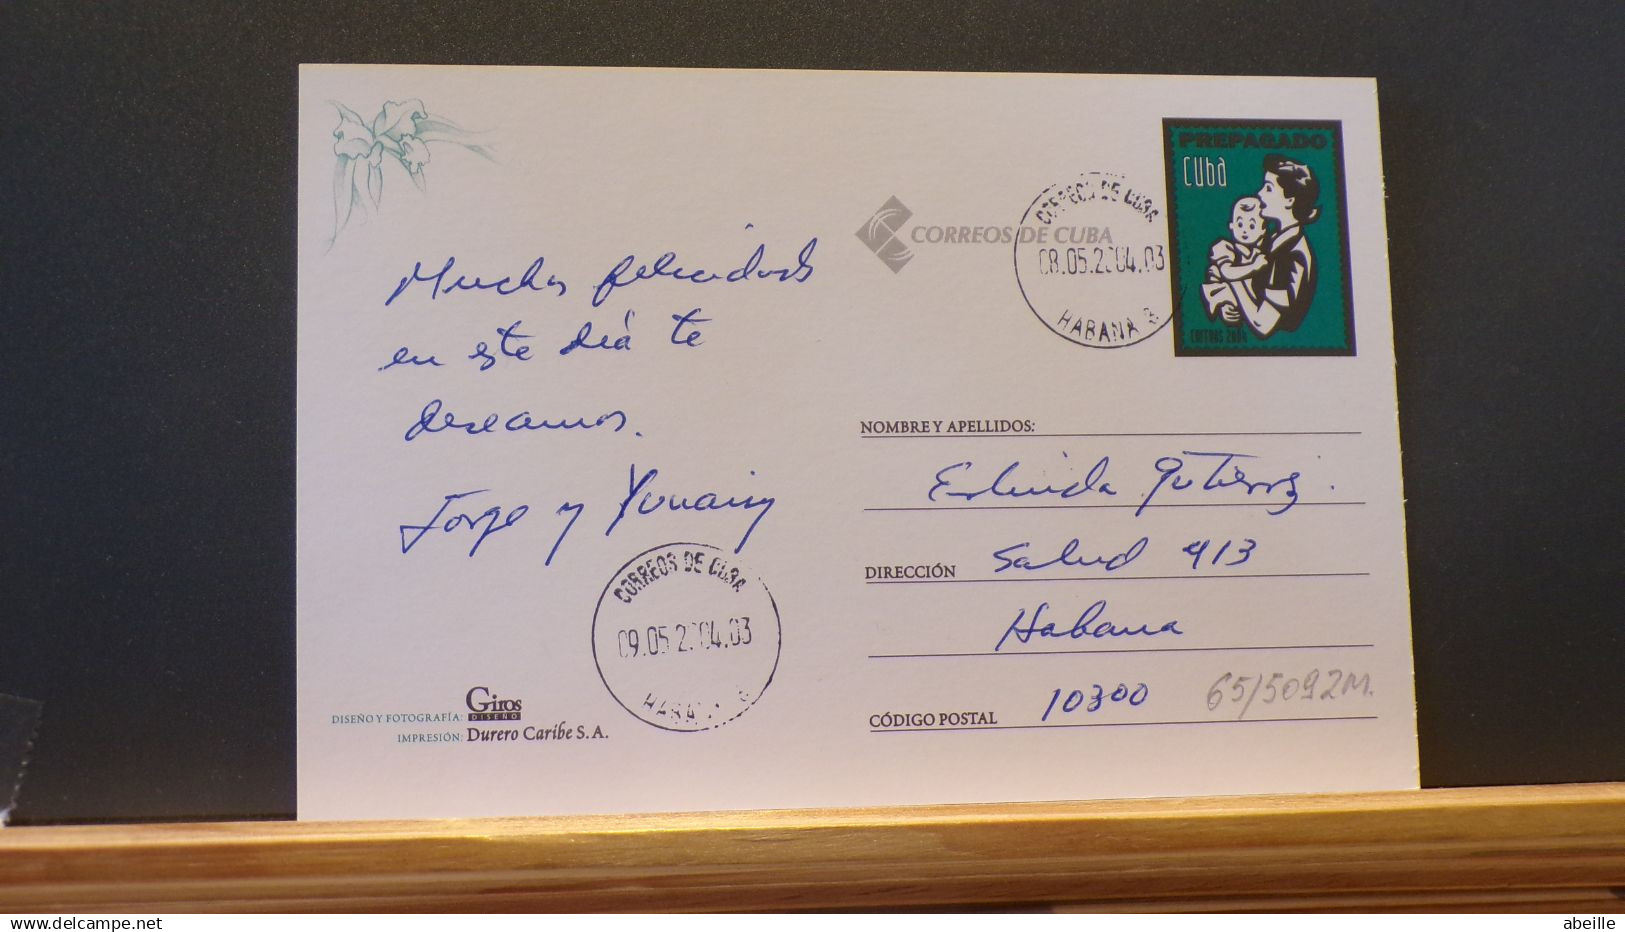 PREPAGADO
Cuba
CORREOS 2004
CORREOS DE CUBA
CORREOS DE CUBA
08.05.2004.03
HABANA 3
Muchas felicidades
en este día te
deseamos.
Jorge y Yunaisy
NOMBRE Y APELLIDOS:
Gutierrez.
DIRECCIÓN Salud 413
Habana
CÓDIGO POSTAL 10300
65/5092M.
CORREOS DE CUBA
09.05.2004.03
HABANA
DISEÑO Y FOTOGRAFÍA: Giros
DISEÑO
IMPRESIÓN: Durero Caribe S.A.
delcampe.net
abeille